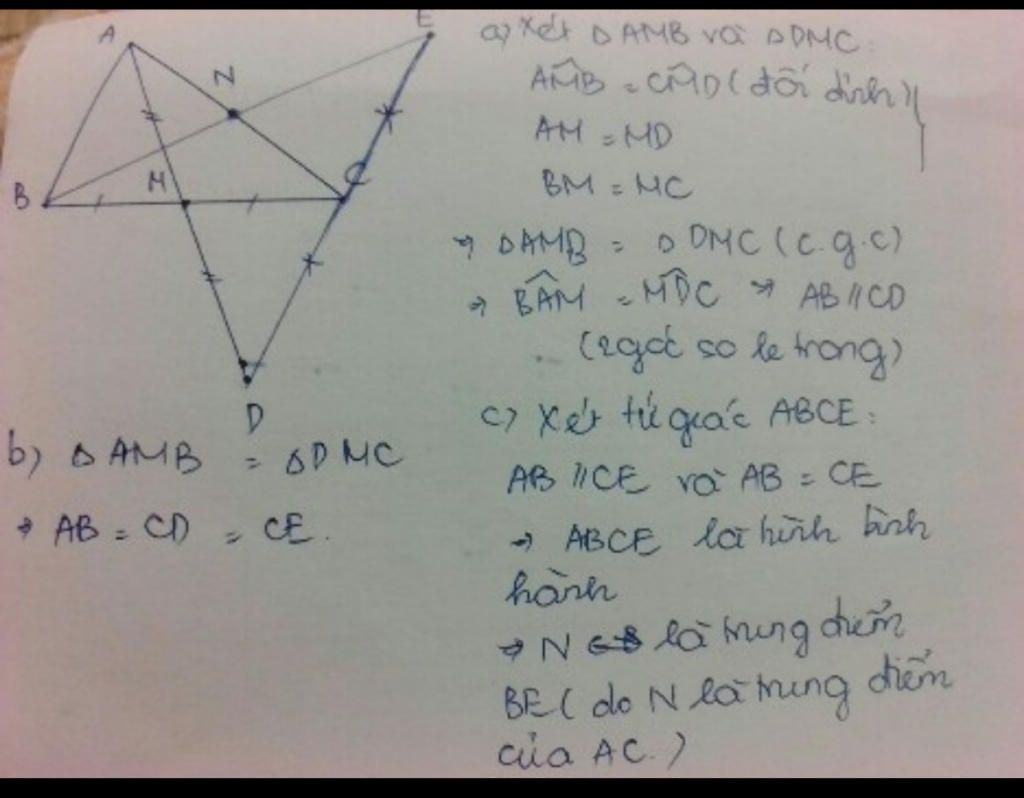 A
E
N
B
M
C
D
a) Xét △AMB và △DMC:
AM̂B = CM̂D (đối đỉnh)
AM = MD
BM = MC
→ △AMB = △DMC (c.g.c)
→ BÂM = MD̂C → AB // CD
(2 góc so le trong)
b) △AMB = △DMC
→ AB = CD = CE.
c) Xét tứ giác ABCE:
AB // CE và AB = CE
→ ABCE là hình bình
hành
→ N là trung điểm
BE ( do N là trung điểm
của AC.)